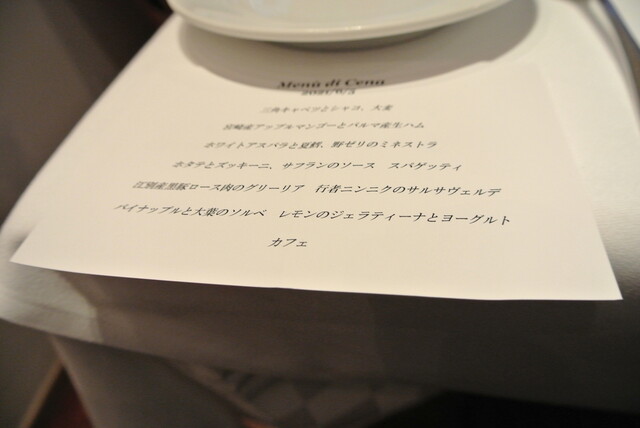 Menù di Cena
三角キャベツとシャコ、大麦
宮崎産アップルマンゴーとパルマ産生ハム
ホワイトアスパラと夏鱈、野ゼリのミネストラ
ホタテとズッキーニ、サフランのソース　スパゲッティ
江別産黒豚ロース肉のグリーリア　行者ニンニクのサルサヴェルデ
パイナップルと大葉のソルベ　レモンのジェラティーナとヨーグルト
カフェ